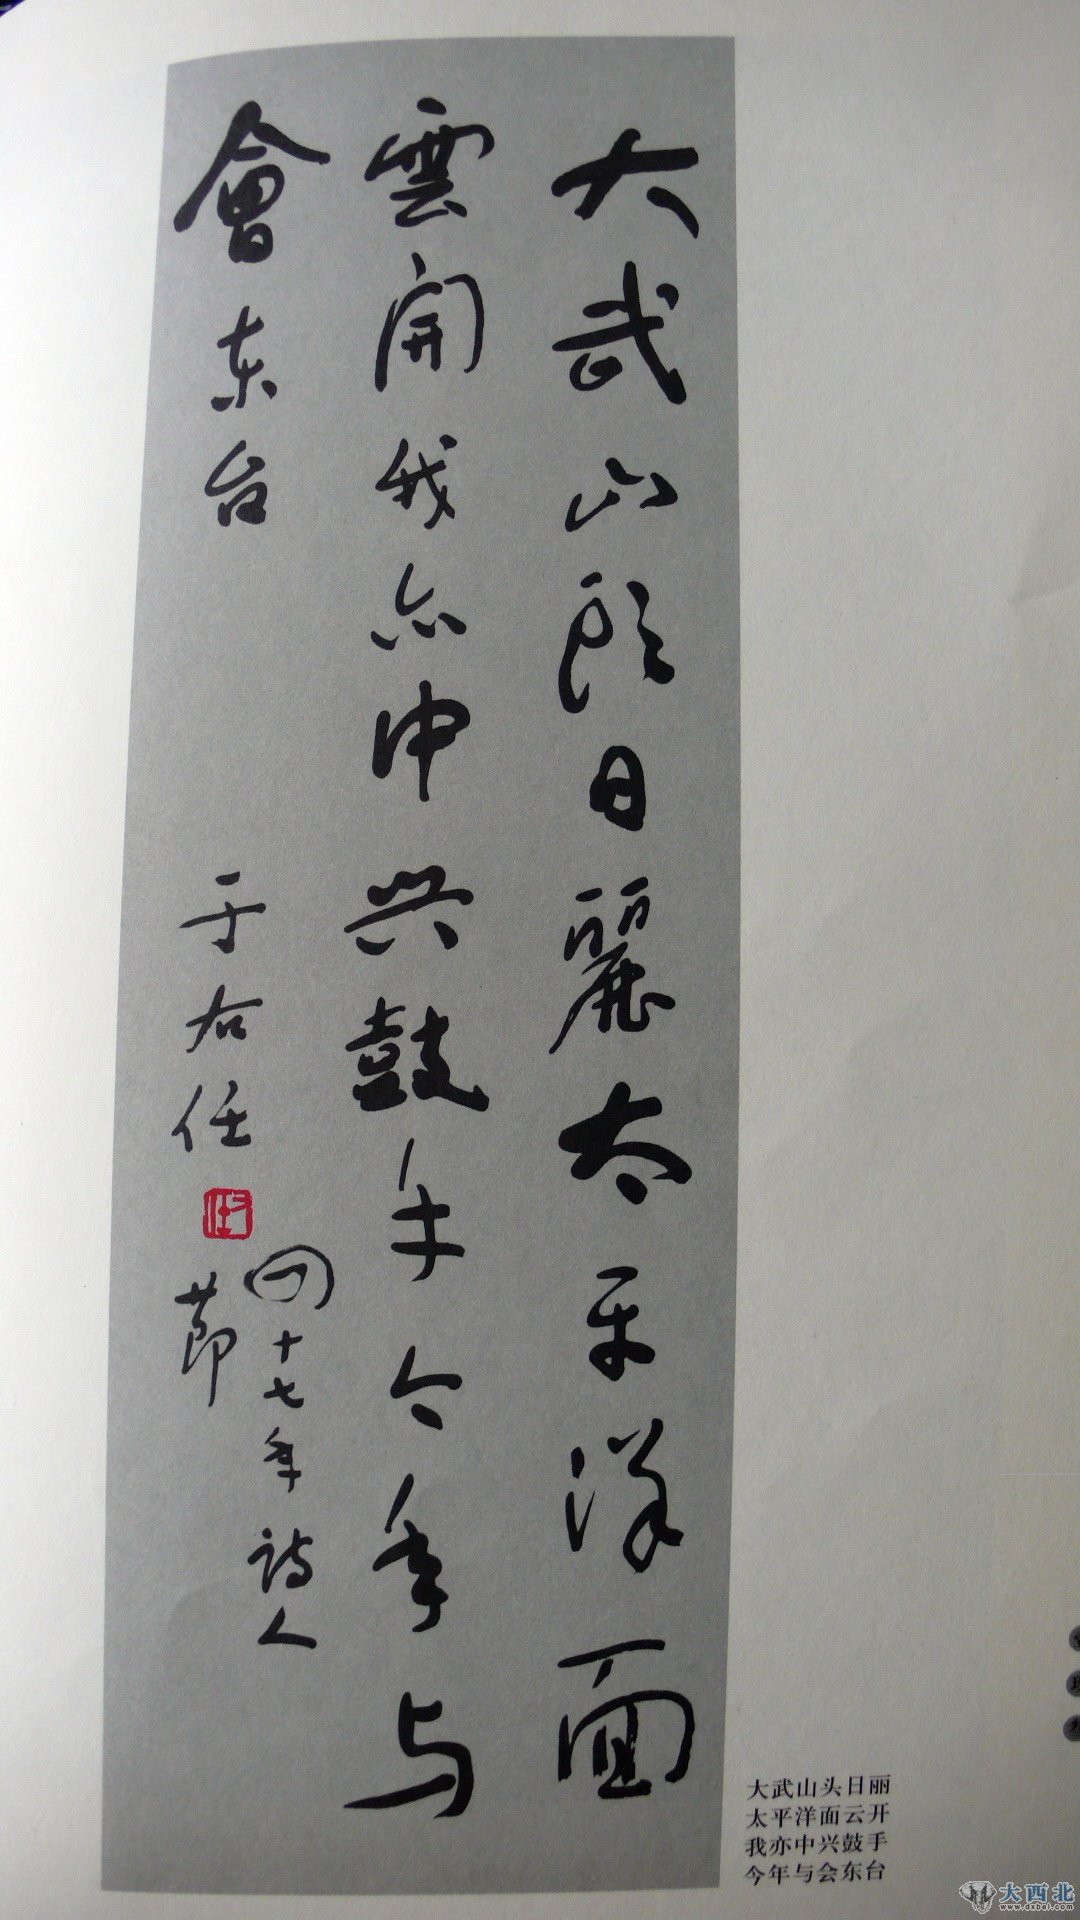 大武山頭日麗太平洋面
雲開我亦中興鼓手今年与
會東台
于右任
四十七年詩人
節
大武山头日丽
太平洋面云开
我亦中兴鼓手
今年与会东台
大西北
www.dxbei.com